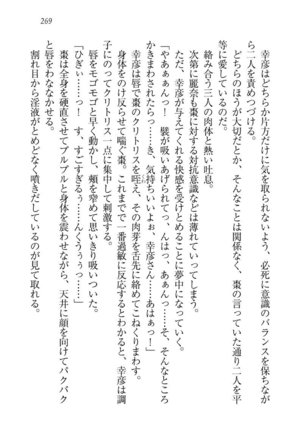 269
幸彦はどちらか片方だけに気を取られないよう、必死に意識のバランスを保ちなが
ら二人を責めつづける。
どちらのほうが大切だとか、そんなことは関係なく、棗の言っていた通り二人を平
等に愛しているのだ。
絡み合う三人の肉体と熱い吐息。
次第に麗奈も棗に対する対抗意識などは薄れていってしまう。
ただ、幸彦が与えてくれる快感を受けとめることに夢中になっていく。
「やあぁぁんっ！　襞が吸いあげられてっ、んはっ、あぁぁんっ……そ、そんなところ
かきまわされたらっ……き、気持ちいいよぉ、幸彦さん……あはぁっ！」
幸彦は唇で棗のクリトリスを咥え、その肉芽を舌先に絡めてこねくりまわす。
身体をのけ反らせて喘ぐ棗。これまでで一番過敏に反応するとわかると、幸彦は調
子にのってクリトリス一点に集中して刺激する。
唇をモゴモゴと早く動かし、頰を窄めて思いきり吸いついた。
「ひぎぃ……っ！　す、すごすぎるぅ……んくうぅぅっ……」
棗は全身を硬直させてブルブルと身体を震わせながら、天井に顔を向けてパクパク
と唇をわななかせる。
割れ目から淫液がとめどなく噴きだしているのが見て取れる。